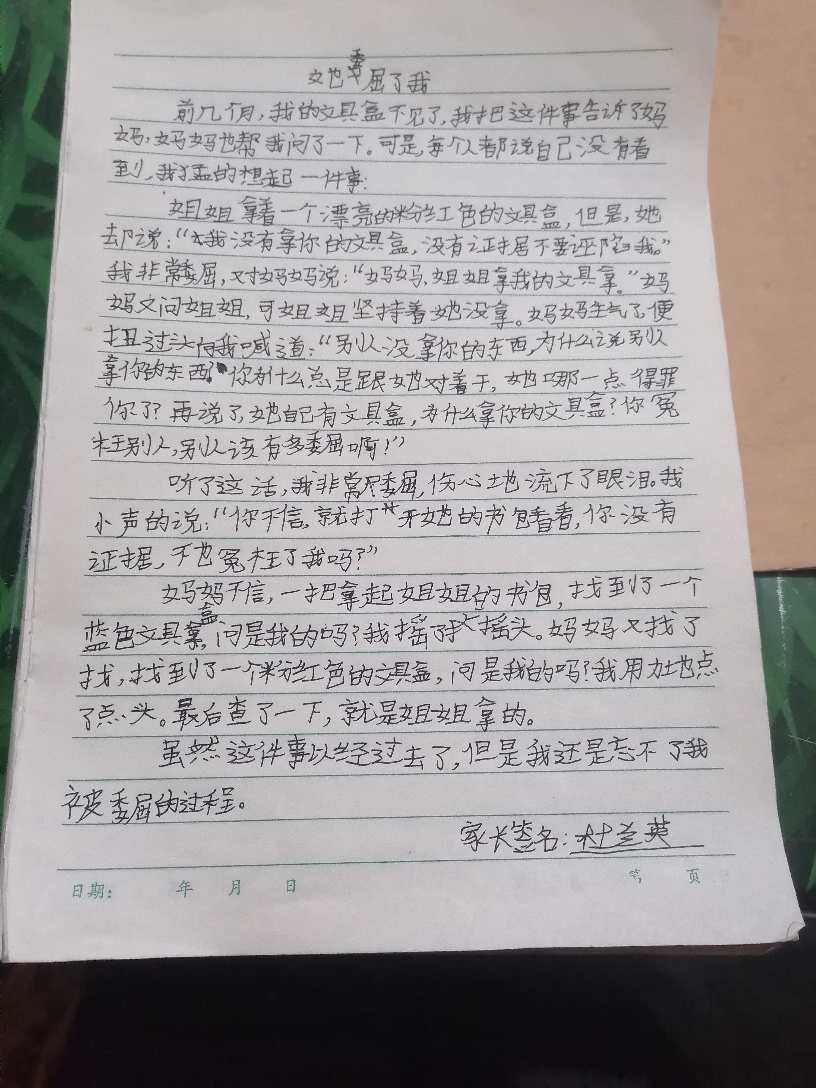 她委屈了我
前几个月，我的文具盒不见了，我把这件事告诉了妈
妈，妈妈也帮我问了一下。可是，每个人都说自己没有看
到，我猛的想起一件事：
姐姐拿着一个漂亮的粉红色的文具盒，但是，她
却说：“我没有拿你的文具盒，没有证据不要诬陷我。”
我非常委屈，对妈妈说：“妈妈，姐姐拿我的文具拿。”妈
妈又问姐姐，可姐姐坚持着她没拿。妈妈生气了，便
扭过头向我喊道：“别人没拿你的东西，为什么说别人
拿你的东西？你为什么总是跟她对着干，她哪一点得罪
你了？再说了，她自己有文具盒，为什么拿你的文具盒？你冤
枉别人，别人该有多委屈啊！”
听了这话，我非常委屈，伤心地流下了眼泪。我
小声的说：“你不信，就打开她的书包看看，你没有
证据，不也冤枉了我吗？”
妈妈不信，一把拿起姐姐的书包，找到了一个
蓝色文具盒，问是我的吗？我摇了摇头。妈妈又找了
找，找到了一个粉红色的文具盒，问是我的吗？我用力地点
了点头。最后查了一下，就是姐姐拿的。
虽然这件事以经过去了，但是我还是忘不了我
被委屈的过程。
家长签名：杜兰英
日期： 年 月 日 第 页